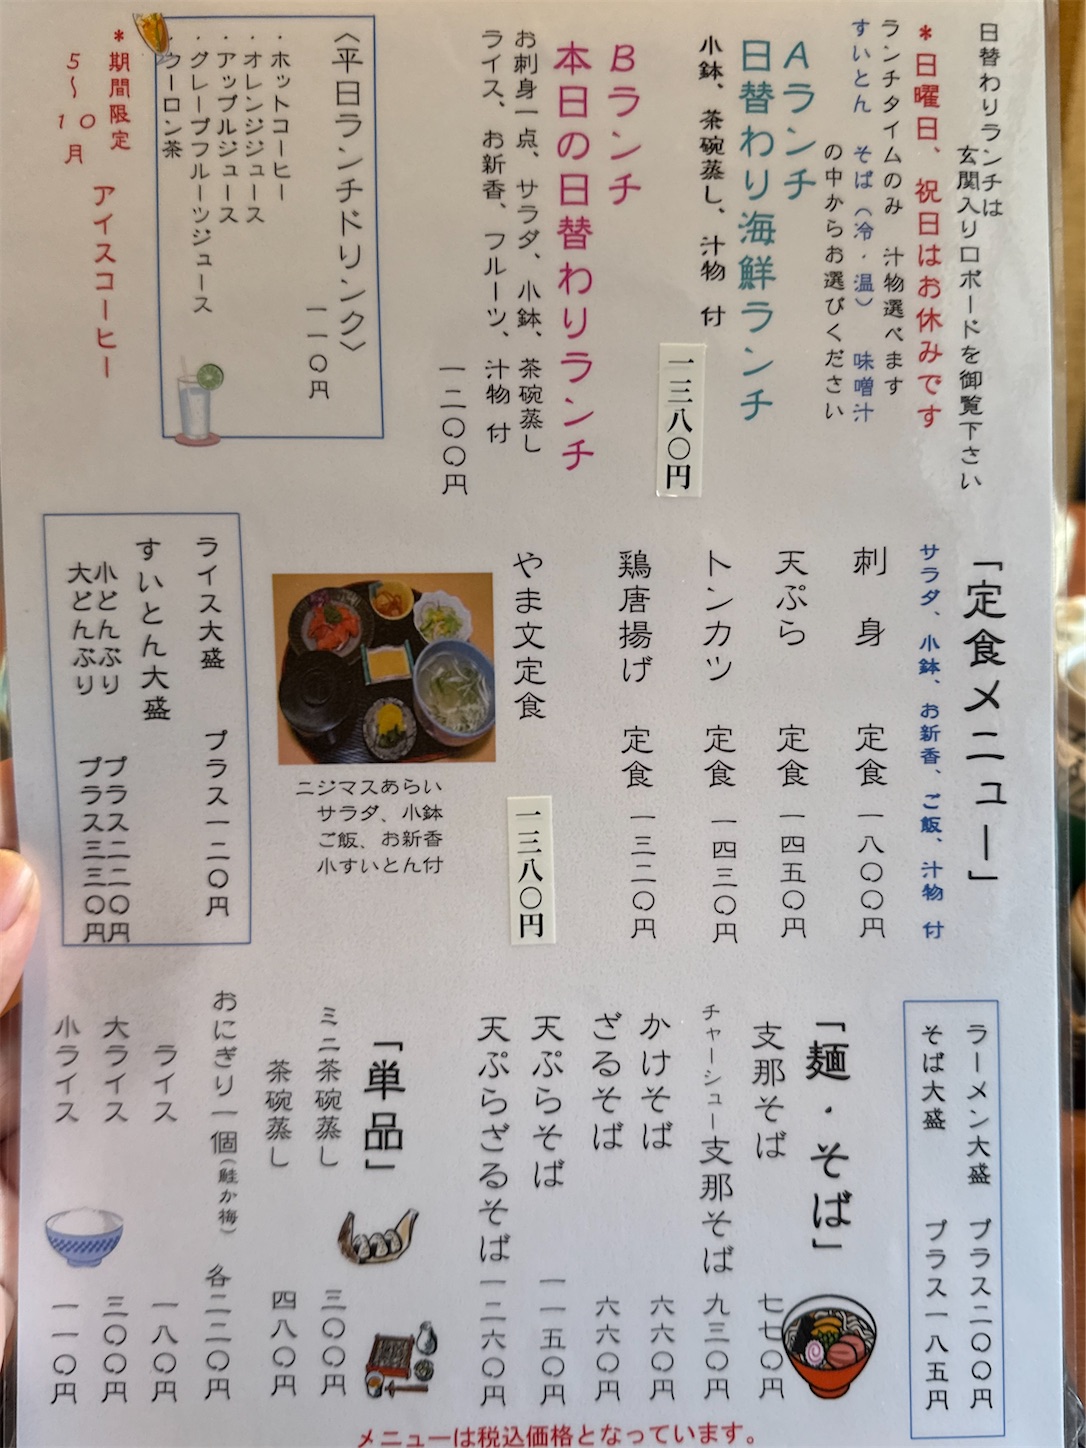 日替わりランチは
玄関入り口ボードを御覧下さい
＊日曜日、祝日はお休みです
ランチタイムのみ　汁物選べます
すいとん　そば（冷・温）　味噌汁
の中からお選びください
Aランチ
日替わり海鮮ランチ
小鉢、茶碗蒸し、汁物　付
一三八〇円
Bランチ
本日の日替わりランチ
お刺身一点、サラダ、小鉢、茶碗蒸し
ライス、お新香、フルーツ、汁物　付
一二〇〇円
〈平日ランチドリンク〉
一一〇円
・ホットコーヒー
・オレンジジュース
・アップルジュース
・グレープフルーツジュース
・ウーロン茶
＊期間限定　アイスコーヒー
５〜１０月
「定食メニュー」
サラダ、小鉢、お新香、ご飯、汁物　付
刺　身　定食　一八〇〇円
天ぷら　定食　一四五〇円
トンカツ　定食　一四三〇円
鶏唐揚げ　定食　一三二〇円
やま文定食　一三八〇円
ニジマスあらい
サラダ、小鉢
ご飯、お新香
小すいとん付
ライス大盛　プラス一二〇円
すいとん大盛
小どんぶり　プラス二二〇円
大どんぶり　プラス三三〇円
ラーメン大盛　プラス二〇〇円
そば大盛　プラス一八五円
「麺・そば」
支那そば　七七〇円
チャーシュー支那そば　九三〇円
かけそば　六六〇円
ざるそば　六六〇円
天ぷらそば　一一五〇円
天ぷらざるそば　一二六〇円
「単品」
ミニ茶碗蒸し　三〇〇円
茶碗蒸し　四八〇円
おにぎり一個（鮭か梅）　各二二〇円
ライス　一八〇円
大ライス　三〇〇円
小ライス　一一〇円
メニューは税込価格となっています。